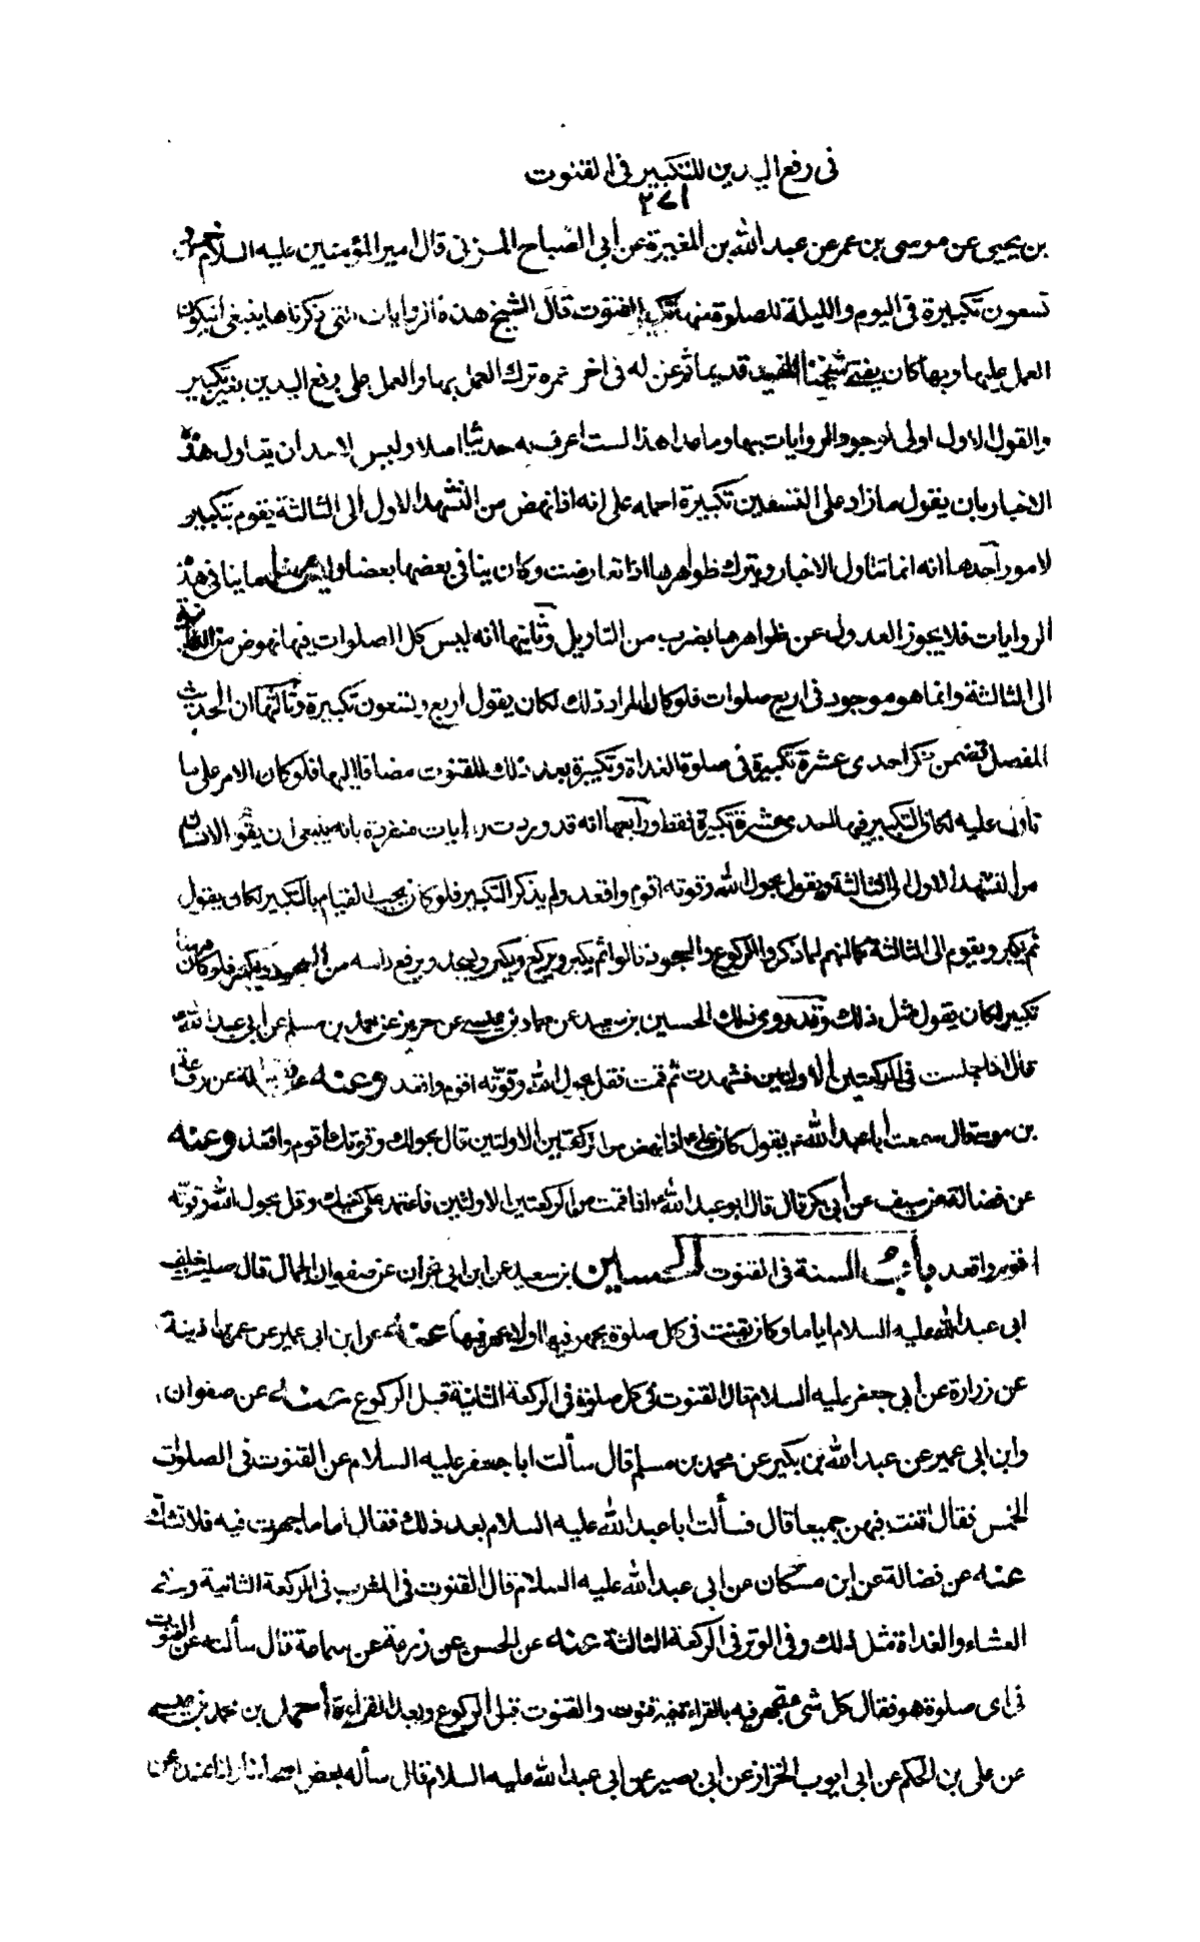 فى رفع اليدين للتكبير فى القنوت
٢٧١
بن يحيى عن موسى بن عمر عن عبد الله بن المغيرة عن أبى الصباح المزنى قال امير المؤمنين عليه السلام خمس و
تسعون تكبيرة فى اليوم والليلة للصلوة منها تكبير القنوت قال الشيخ هذه الروايات التى ذكرناها ينبغى ان يكون
العمل عليها وبها كان يفتى شيخنا المفيد قديما ثم عن له فى اخر عمره ترك العمل بها والعمل على رفع اليدين بغير تكبير
والقول الاول اولى لوجود الروايات بها وما عدا هذا لست اعرف به حديثا اصلا وليس لاحد ان يتاول هذه
الاخبار بان يقول ما زاد على التسعين تكبيرة احمله على انه اذا نهض من التشهد الاول الى الثالثة يقوم بتكبير
لامور احدها انه انما تتاول الاخبار ويترك ظواهرها اذا تعارضت وكان ينافى بعضها بعضا وليس هنا ما ينافى هذه
الروايات فلا يجوز العدول عن ظواهرها بضرب من التاويل وثانيها انه ليس كل الصلوات فيها نهوض من الثانية
الى الثالثة وانما هو موجود فى اربع صلوات فلو كان المراد ذلك لكان يقول اربع وتسعون تكبيرة وثالثها ان الحديث
المفصل تضمن ذكر احدى عشرة تكبيرة فى صلوة الغداة وتكبيرة بعد ذلك للقنوت مضافا اليها فلو كان الامر على ما
تاول عليه لكان التكبير فيها احدى عشرة تكبيرة فقط ورابعها انه قد وردت روايات منفردة بانه ينبغى ان يقول الانسان
من التشهد الاول الى الثالثة ويقول بحول الله وقوته اقوم واقعد ولم يذكر التكبير فلو كان يجب القيام بالتكبير لكان يقول
ثم يكبر ويقوم الى الثالثة كما انهم لما ذكروا الركوع والسجود قالوا ثم يكبر ويركع ويكبر ويسجد ويرفع راسه من السجود ويكبر فلو كان هيهنا
تكبير لكان يقول مثل ذلك وقد روى ذلك الحسين بن سعيد عن حماد بن عيسى عن حريز عن محمد بن مسلم عن ابى عبد الله ع
قال اذا جلست فى الركعتين الاولتين فتشهدت ثم قمت فقل بحول الله وقوته اقوم واقعد وعنه عن فضالة عن رفاعة
بن موسى قال سمعت ابا عبد الله ع يقول كان على ع اذا نهض من الركعتين الاولتين قال بحولك وقوتك اقوم واقعد وعنه
عن فضالة عن سيف عن أبى بكر قال قال ابو عبد الله ع اذا قمت من الركعتين الاولتين فاعتمد على كفيك وقل بحول الله وقوته
اقوم واقعد باب السنة فى القنوت الحسين بن سعيد عن ابن ابى نجران عن صفوان الجمال قال صليت خلف
ابى عبد الله عليه السلام اياما وكان يقنت فى كل صلوة يجهر فيها او لا يجهر فيها عنه عن ابن ابى عمير عن عمر بن اذينة
عن زرارة عن أبى جعفر عليه السلام قال القنوت فى كل صلوة فى الركعة الثانية قبل الركوع عنه عن صفوان
وابن ابى عمير عن عبد الله بن بكير عن محمد بن مسلم قال سألت ابا جعفر عليه السلام عن القنوت فى الصلوات
الخمس فقال اقنت فيهن جميعا قال فسألت ابا عبد الله عليه السلام بعد ذلك فقال اما ما جهرت فيه فلا تشك
عنه عن فضالة عن ابن مسكان عن ابى عبد الله عليه السلام قال القنوت فى المغرب فى الركعة الثانية وفى
العشاء والغداة مثل ذلك وفى الوتر فى الركعة الثالثة عنه عن الحسن عن زرعة عن سماعة قال سألته عن القنوت
فى اى صلوة هو فقال كل شىء يجهر فيه بالقراءة فيه قنوت والقنوت قبل الركوع وبعد القراءة أحمد بن محمد بن عيسى
عن على بن الحكم عن ابى ايوب الخزاز عن ابى بصير عن ابى عبد الله عليه السلام قال سأله بعض اصحابنا وانا عنده عن